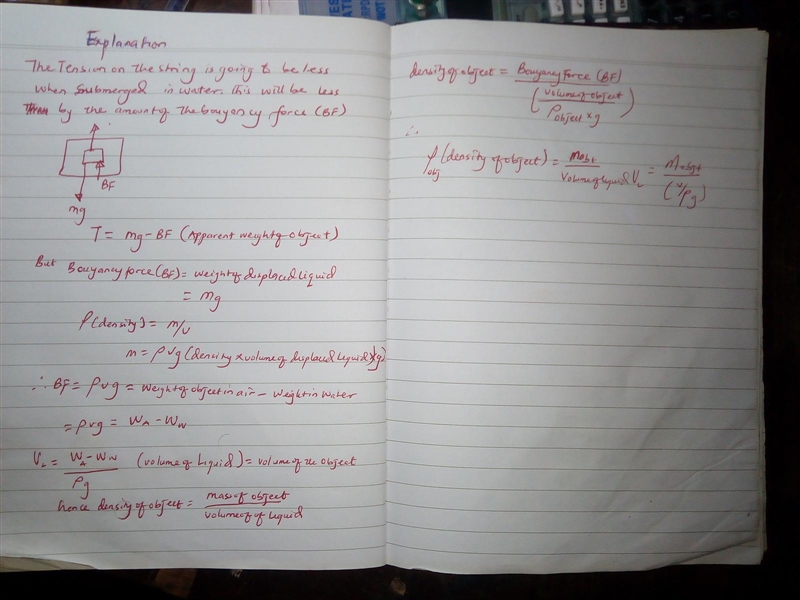 Explanation
The Tension on the string is going to be less
when Submerged in water. This will be less
by the amount of the bouyancy force (BF)
BF
mg
T = mg - BF (Apparent weight of object)
But Bouyancy force (BF) = weight of displaced Liquid
= mg
ρ(density) = m/v
m = ρvg (density x volume of displaced Liquid x g)
∴ BF = ρvg = weight of object in air - weight in water
= ρvg = WA - WW
VL = WA - WW / ρg (volume of Liquid) = volume of the object
hence density of object = mass of object / volume of of Liquid
density of object = Bouyancy Force (BF) / (volume of object / ρobject x g)
∴
ρobj (density of object) = / volume of liquid VL = / ( /ρg)